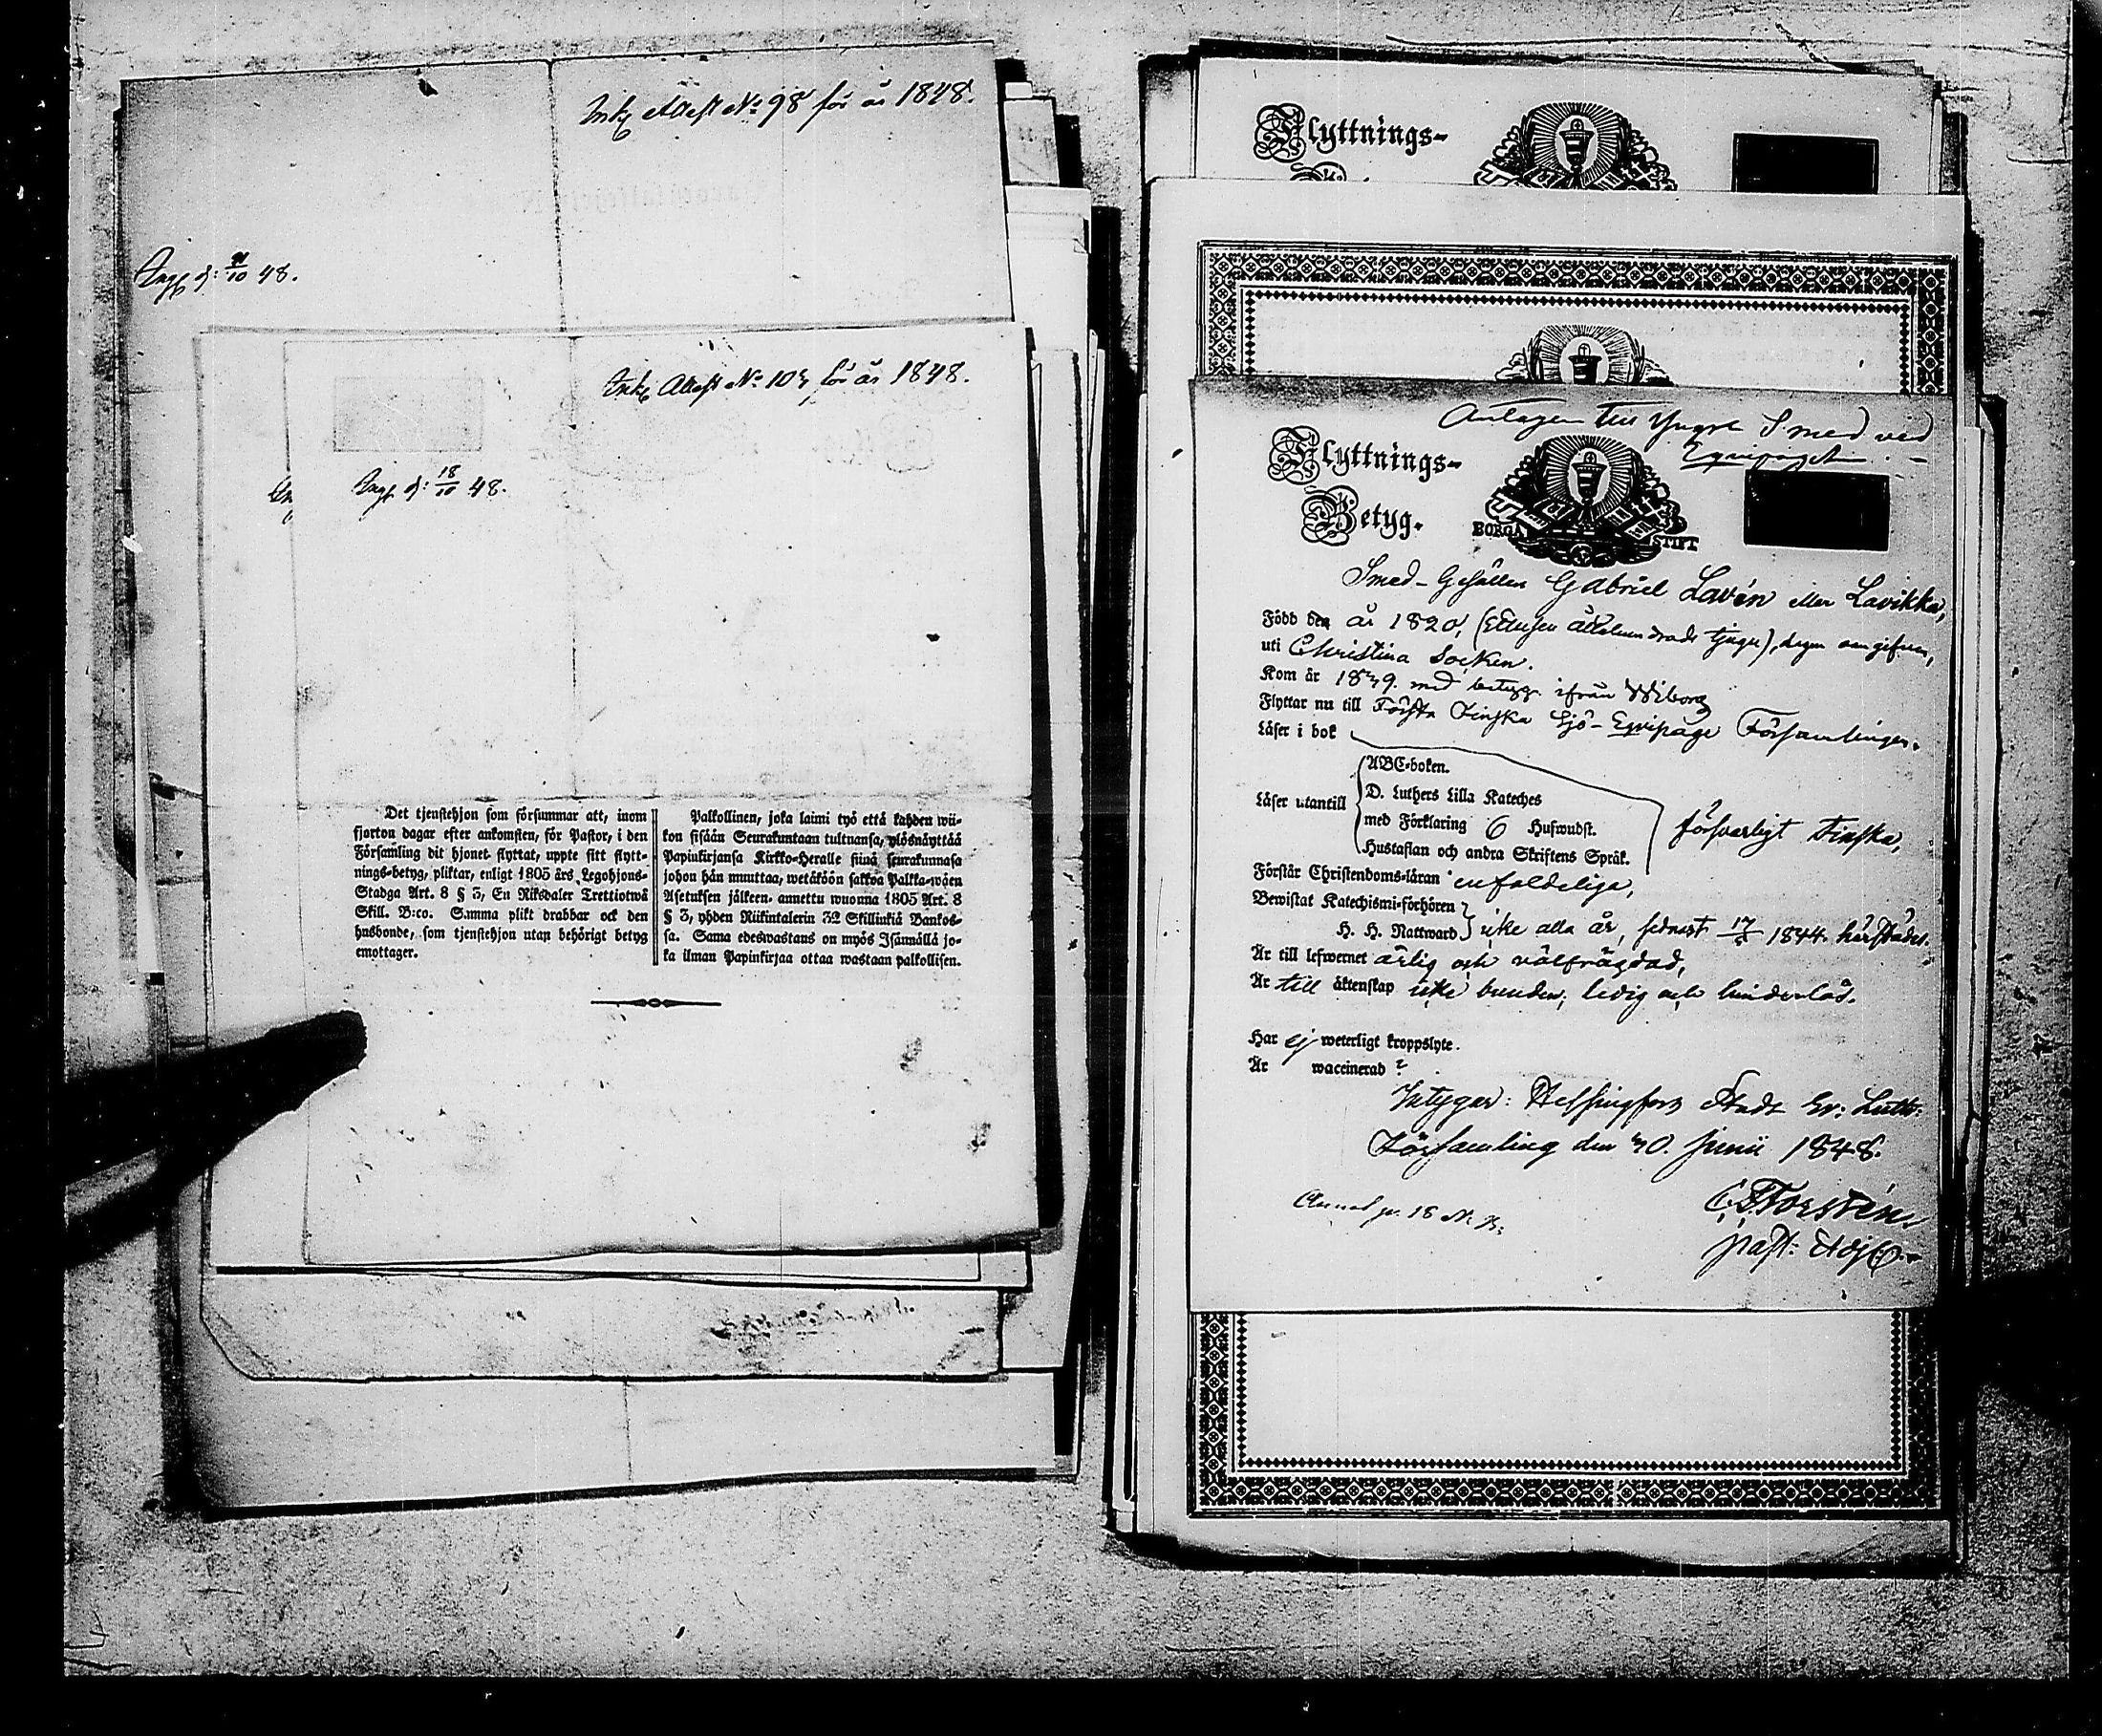 Ink. Attest No 98 för år 1848.
Ingf. d: 48.
Ink. Attest No 103 för år 1848.
Ingf. d: 18/10 48.
Det tjenstehjon som försummar att, inom
fjorton dagar efter ankomsten, för Pastor, i den
Församling dit hjonet flyttat, uppte sitt flytt-
nings-betyg, pliktar, enligt 1805 års Legohjons-
Stadga Art. 8 § 3, En Riksdaler Trettiotwå
Skill. B:co. Samma plikt drabbar ock den
husbonde, som tjenstehjon utan behörigt betyg
emottager.
Palkollinen, joka laimi lyö että kahden wii-
kon sisään Seurakuntaan tultuansa, ylösnäyttää
Papinkirjansa Kirkko-Herralle siinä seurakunnasa
johon hän muuttaa, wetäköön sakkoa Palkka-wäen
Asetuksen jälkeen annettu wuonna 1805 Art. 8
§ 3, yhden Riikintalerin 32 Skillinkiä Bankos-
sa. Sama edeswastaus on myös Isännällä jo-
ka ilman Papinkirjaa ottaa wastaan palkollisen.
Flyttnings-
Antagen till Yngre Smed vid
Equipaget.
Flyttnings-
Betyg.
BORGÅ STIFT
Smed-Gesällen Gabriel Lavén eller Lavikka,
Född den år 1820, (Ettusen åttahundrade tjugu), dagen ej angifven,
uti Christina Socken.
Kom år 1839. med betyg ifrån Wiborg
Flyttar nu till Första Finska Sjö-Equipage Församlingen.
Läser i bok
Läser utantill
ABC-boken.
D. Luthers Lilla Kateches
med Förklaring 6 Hufwudst.
Hustaflan och andra Skriftens Språk.
försvarligt Finska,
Förstår Christendoms-läran enfaldeliga,
Bewistat Katechismi-förhören
H. H. Nattward
icke alla år, sednast 1844 härstädes.
Är till lefwernet ärlig och välfrägdad,
Är till äktenskap icke bunden, ledig och hinderlös.
Har ej weterligt kroppslyte.
Är waccinerad?
Intygar: Helsingfors Stads Ev: Luth:
Församling den 30. Junii 1848.
C. F. Forstén
past: Adj.